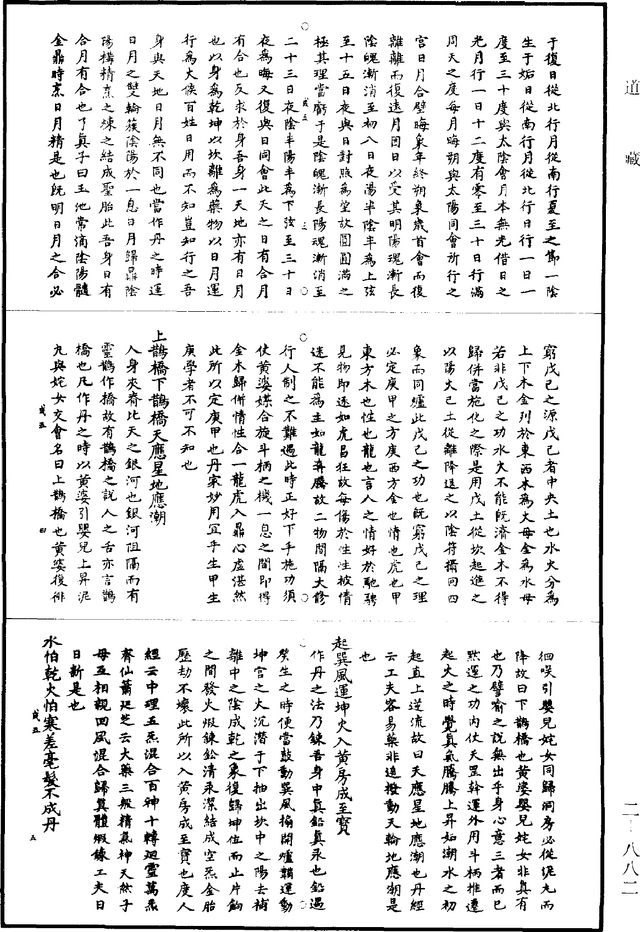 道藏
二-八八二
于復日從北行月從南行夏至之節一陰
生于姤日從南行月從北行日行一日一
度至三十度與太陰會月本無光借日之
光月行一日十二度有零至三十日行滿
周天之度每月晦朔與太陽同會所行之
宮日月合璧晦象年終朔象歲首會而復
離離而復遠月因日以受其明陽魂漸長
陰魄漸消至初八日夜陽半陰半為上弦
至十五日夜與日對照為望故圓圓滿之
極其理當虧于是陰魄漸長陽魂漸消至
二十三日夜陰半陽半為下弦至三十日
夜為晦又復與日同會此天之日有合月
有合也反求於身吾身一天地亦有日月
也以身為乾坤以坎離為藥物以日月運
行為火候百姓日用而不知豈知行之吾
身與天地日月無不同也當作丹之時運
日月之雙輪簇陰陽於一息日月歸鼎陰
陽構精烹之煉之結成聖胎此吾身日有
合月有合也了真子曰玉池常滴陰陽髓
金鼎時烹日月精是也既明日月之合必
戌五 三
窮戊己之源戊己者中央土也水火分為
上下木金列於東西木為火母金為水母
若非戊己之功水火不能既濟金木不得
歸併當施化之際是用戊土從坎起進之
以陽火己土從離降退之以陰符攝回四
象而同爐此戊己之功也既窮戊己之理
必定庚甲之方庚西方金也情也虎也甲
東方木也性也龍也言人之情好於馳騁
見物即迷如虎昌狂故每傷於性性被情
迷不能為主如龍奔騰故二物間隔大修
行人制之不難過此時正好下手施功須
仗黃婆媒合旋斗柄之機一息之間即得
金木歸併情性合一龍虎入鼎心虛湛然
此所以定庚甲也丹家妙用宜乎生甲生
庚學者不可不知也
上鵲橋下鵲橋天應星地應潮
人身夾脊比天之銀河也銀河阻隔而有
靈鵲作橋故有鵲橋之說人之舌亦言鵲
橋也凡作丹之時以黃婆引嬰兒上昇泥
丸與姹女交會名曰上鵲橋也黃婆復徘
戌五 四
徊哄引嬰兒姹女同歸洞房必從泥丸而
降故曰下鵲橋也黃婆嬰兒姹女非真有
也乃譬喻之說無出乎身心意三者而已
默運之功內仗天罡斡運外用斗柄推遷
起火之時覺真氣騰騰上昇如潮水之初
起直上逆流故曰天應星地應潮也丹經
云工夫容易藥非遙撥動天輪地應潮是
也
起巽風運坤火入黃房成至寶
作丹之法乃鍊吾身中真鉛真汞也鉛遇
癸生之時便當鼓動巽風搧開爐鞴運動
坤宮之火沉潛于下抽出坎中之陽去補
離中之陰成乾之象復歸坤位而止片餉
之間發火煅鍊鉛清汞潔結成空炁金胎
歷劫不壞此所以入黃房成至寶也度人
經云中理五炁混合百神十轉迴靈萬炁
齊仙蕭廷芝云大藥三般精氣神天然子
母互相親回風混合歸真體煅鍊工夫日
日新是也
水怕乾火怕寒差毫髮不成丹
戌五 五